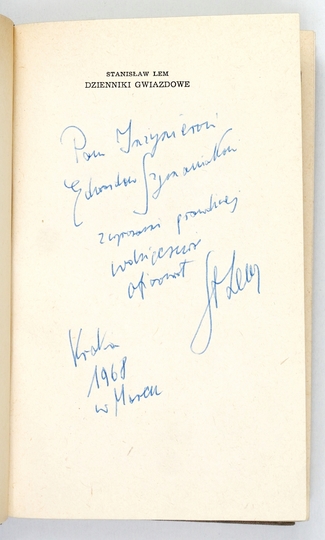 STANISŁAW LEM
DZIENNIKI GWIAZDOWE
Panu Inżynierowi
Edwardowi Szymańskiemu
z wyrazami prawdziwej
wdzięczności
ofiarował
St Lem
Kraków
1968
w Marcu